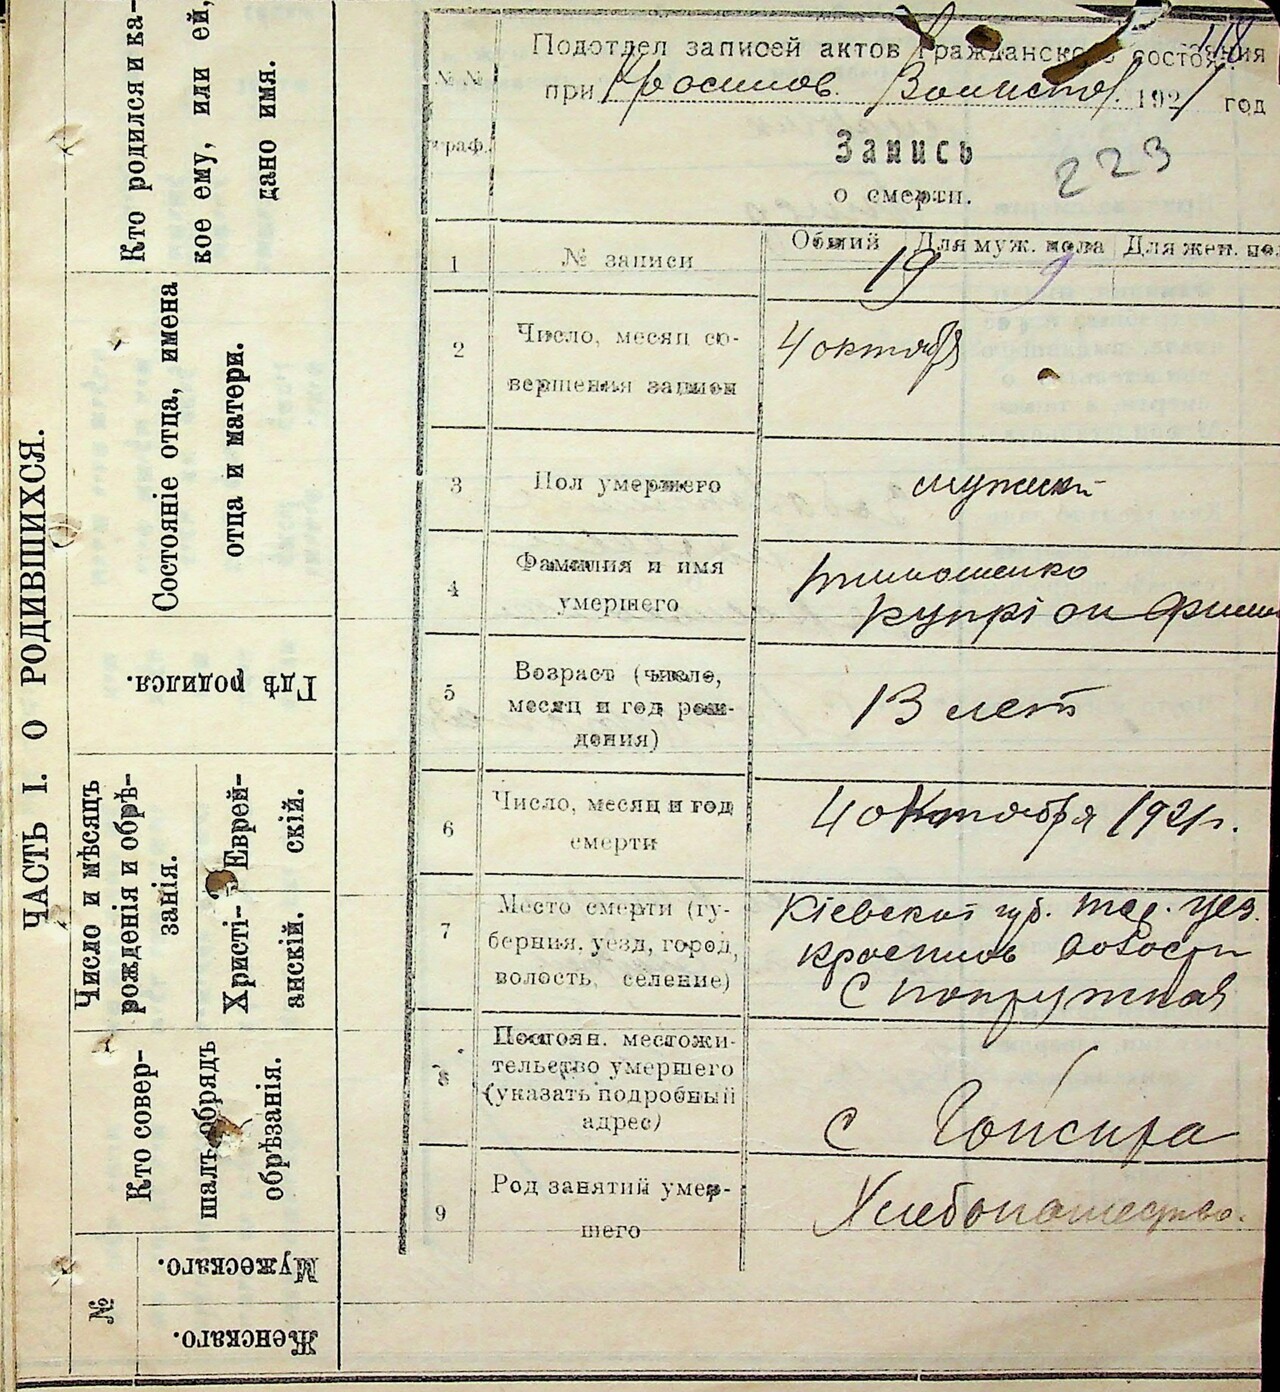 ЧАСТЬ I. О РОДИВШИХСЯ.
Кто родился и ка-
кое ему, или ей,
дано имя.
Состоянiе отца, имена
отца и матери.
Гдѣ родился.
Число и мѣсяцъ
рожденiя и обрѣ-
занiя.
Христi-
анскiй.
Еврей-
скiй.
Кто совер-
шалъ обрядъ
обрѣзанiя.
№
Мужескаго.
Женскаго.
118
Подотдел записей актов Гражданского состояния
при 1921 год
№№
граф.
Запись
о смерти.
223
1
№ записи
Общий
Для муж. пола
Для жен. пол
19
9
2
Число, месяц со-
вершения записи
4 октября
3
Пол умершего
мужской
4
Фамилия и имя
умершего
Тимошенко
Купрiон
5
Возраст (число,
месяц и год рож-
дения)
13 лет
6
Число, месяц и год
смерти
4 октября 1921 г.
7
Место смерти (гу-
берния, уезд, город,
волость, селение)
Кiевской губ. уез.
волости
С
8
Постоян. местожи-
тельство умершего
(указать подробный
адрес)
С
9
Род занятий умер-
шего
Хлебопашество.